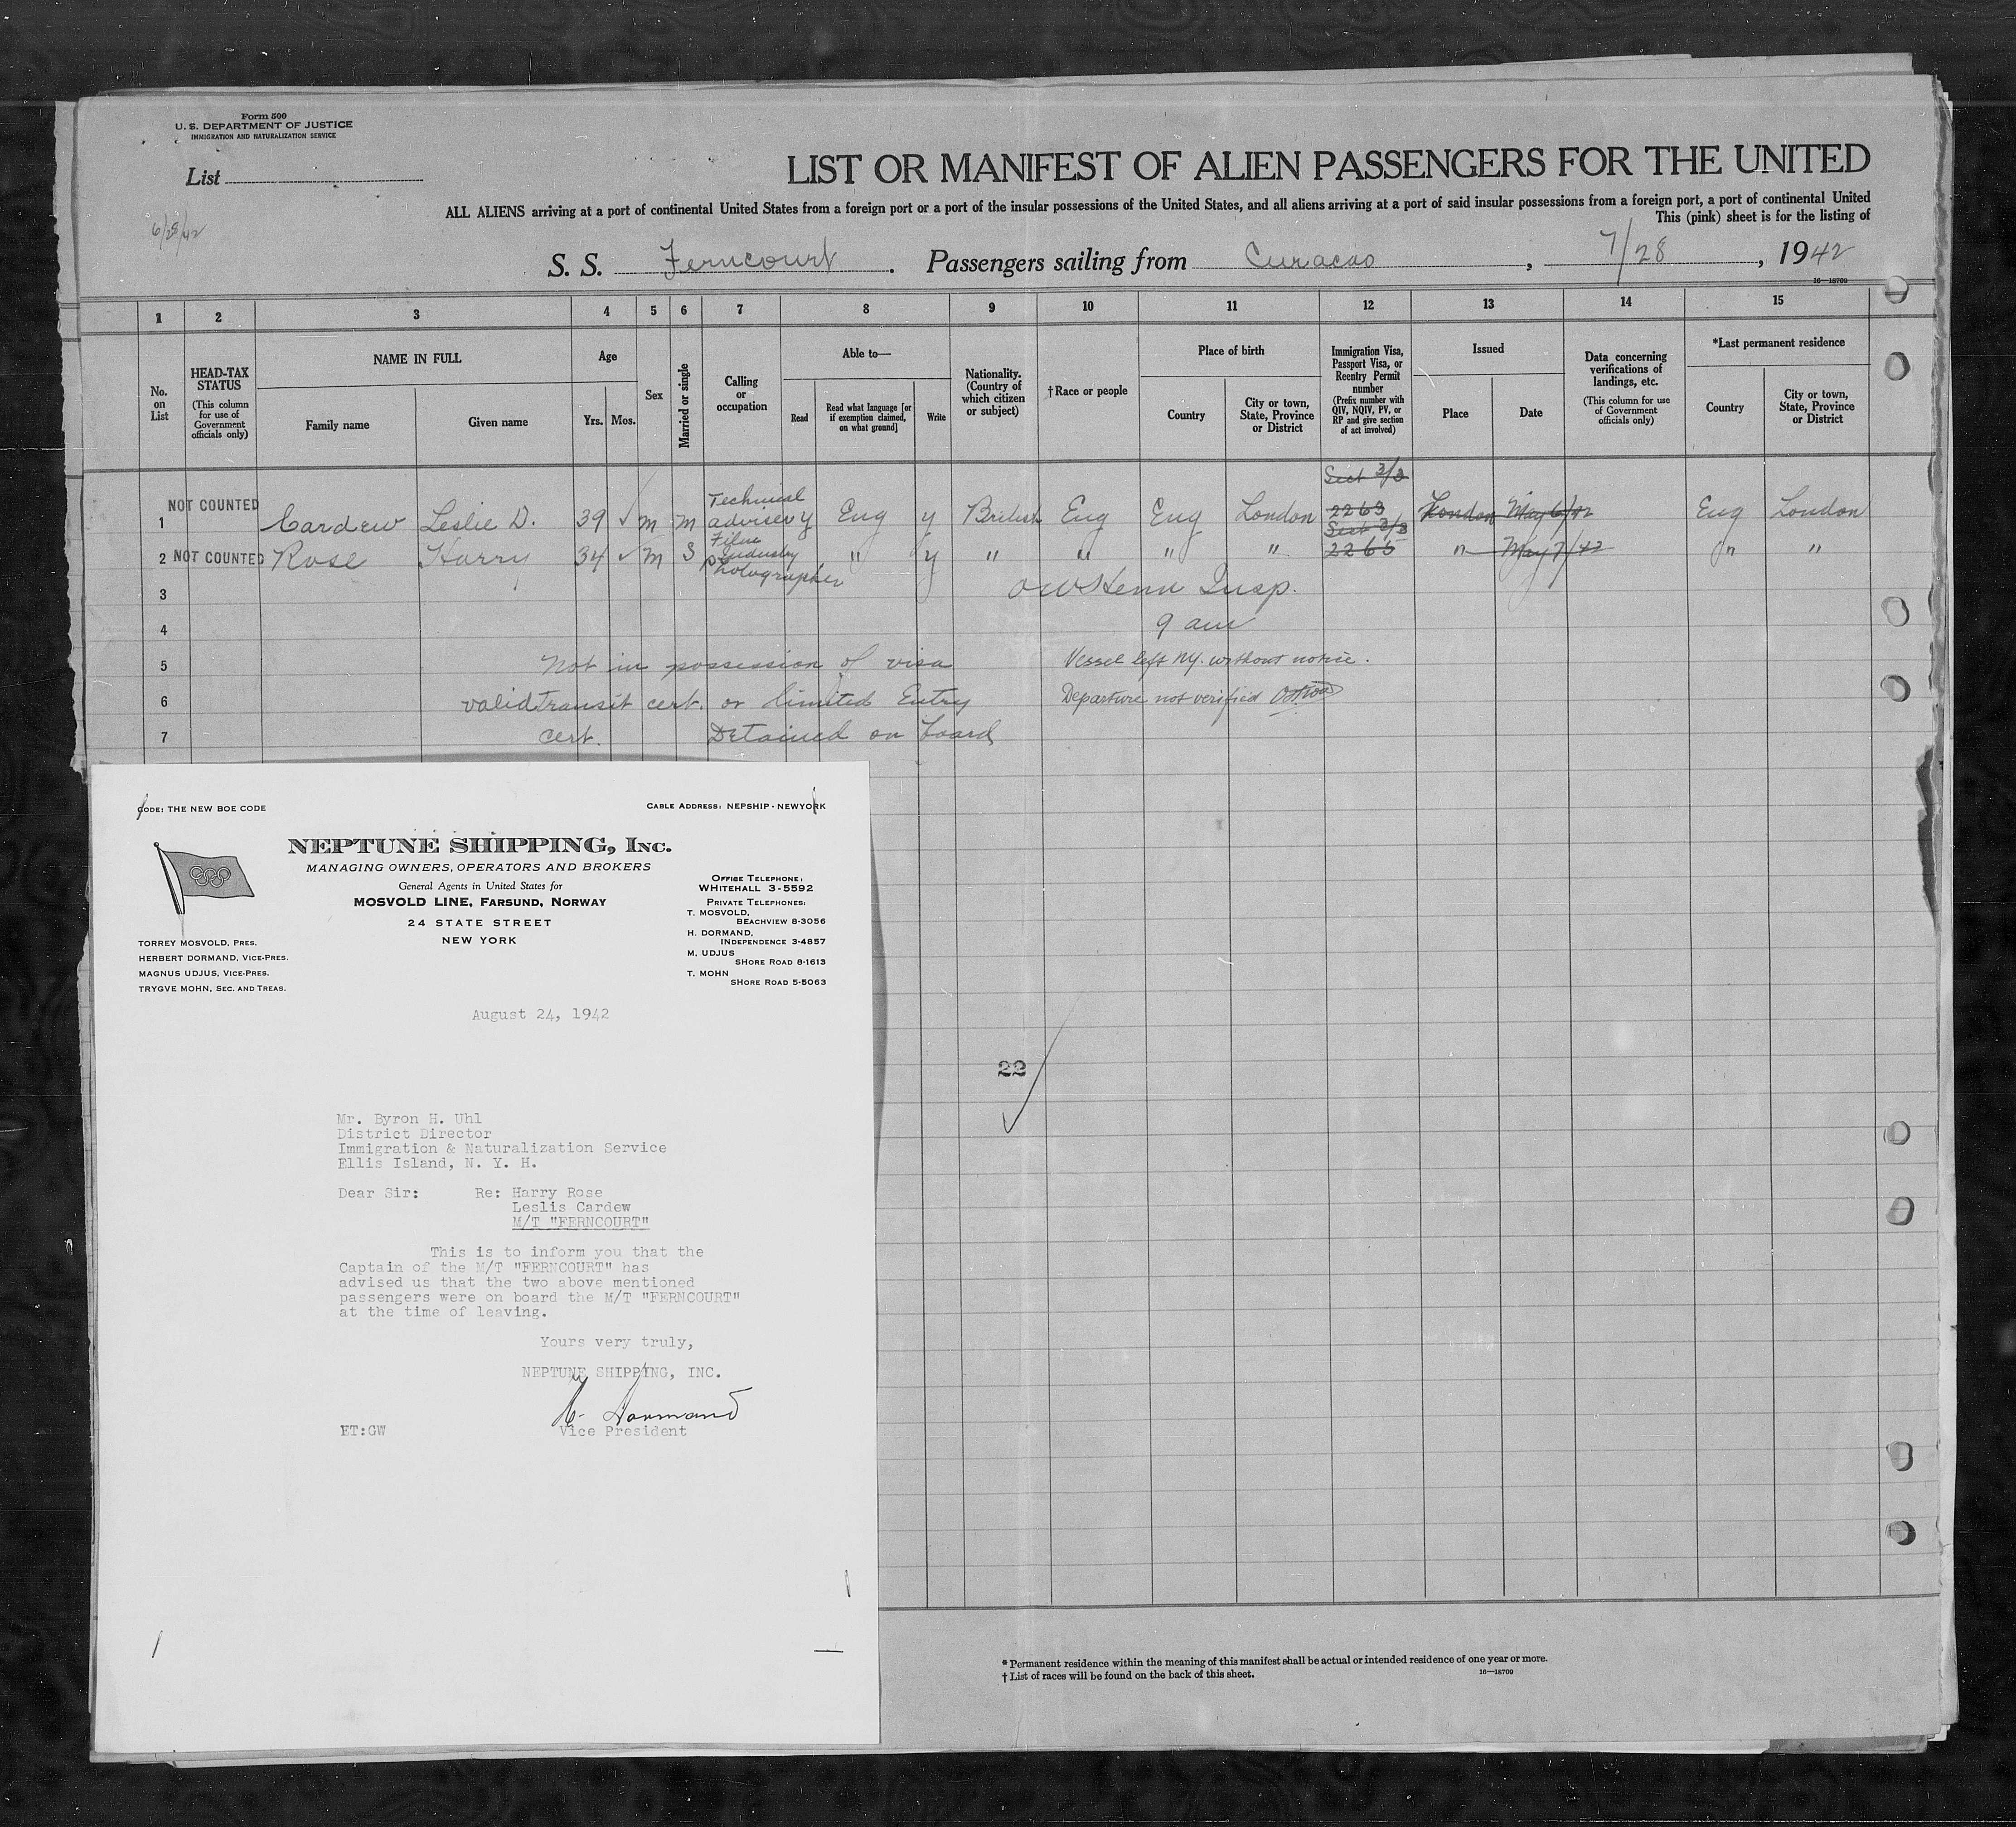 Form 500
U. S. DEPARTMENT OF JUSTICE
IMMIGRATION AND NATURALIZATION SERVICE
List
6/28/42
LIST OR MANIFEST OF ALIEN PASSENGERS FOR THE UNITED
ALL ALIENS arriving at a port of continental United States from a foreign port or a port of the insular possessions of the United States, and all aliens arriving at a port of said insular possessions from a foreign port, a port of continental United
This (pink) sheet is for the listing of
S. S. Ferncourt. Passengers sailing from Curacao, 7/28, 1942
16—18709
1 2 3 4 5 6 7 8 9 10 11 12 13 14 15
No. on List
HEAD-TAX STATUS
(This column for use of Government officials only)
NAME IN FULL
Family name
Given name
Age
Yrs. Mos.
Sex
Married or single
Calling or occupation
Able to—
Read
Read what language [or if exemption claimed, on what ground]
Write
Nationality. (Country of which citizen or subject)
† Race or people
Place of birth
Country
City or town, State, Province or District
Immigration Visa, Passport Visa, or Reentry Permit number
(Prefix number with QIV, NQIV, PV, or RP and give section of act involved)
Issued
Place
Date
Data concerning verifications of landings, etc.
(This column for use of Government officials only)
*Last permanent residence
Country
City or town, State, Province or District
1 NOT COUNTED Cardew Leslie D. 39 ✓ m m Technical adviser y Eng y British Eng Eng London Sect 3/3 2263 London May 6/42 Eng London
2 NOT COUNTED Rose Harry 34 ✓ m S Film Industry Photographer " y " " " " Sect 3/3 2265 " May 7/42 " "
3 Insp.
4 9 am
5 Not in possession of visa Vessel left NY. without notice.
6 valid Transit cert. or limited Entry Departure not verified
7 cert. Detained on board
22
CODE: THE NEW BOE CODE
CABLE ADDRESS: NEPSHIP - NEWYORK
NEPTUNE SHIPPING, INC.
MANAGING OWNERS, OPERATORS AND BROKERS
General Agents in United States for
MOSVOLD LINE, FARSUND, NORWAY
24 STATE STREET
NEW YORK
OFFICE TELEPHONE:
WHITEHALL 3-5592
PRIVATE TELEPHONES:
T. MOSVOLD,
BEACHVIEW 8-3056
H. DORMAND,
INDEPENDENCE 3-4857
M. UDJUS
SHORE ROAD 8-1613
T. MOHN
SHORE ROAD 5-5063
TORREY MOSVOLD, PRES.
HERBERT DORMAND, VICE-PRES.
MAGNUS UDJUS, VICE-PRES.
TRYGVE MOHN, SEC. AND TREAS.
August 24, 1942
Mr. Byron H. Uhl
District Director
Immigration & Naturalization Service
Ellis Island, N. Y. H.
Dear Sir: Re: Harry Rose
Leslis Cardew
M/T "FERNCOURT"
This is to inform you that the
Captain of the M/T "FERNCOURT" has
advised us that the two above mentioned
passengers were on board the M/T "FERNCOURT"
at the time of leaving.
Yours very truly,
NEPTUNE SHIPPING, INC.
H. Dormand
Vice President
ET:GW
* Permanent residence within the meaning of this manifest shall be actual or intended residence of one year or more.
† List of races will be found on the back of this sheet.
16—18709